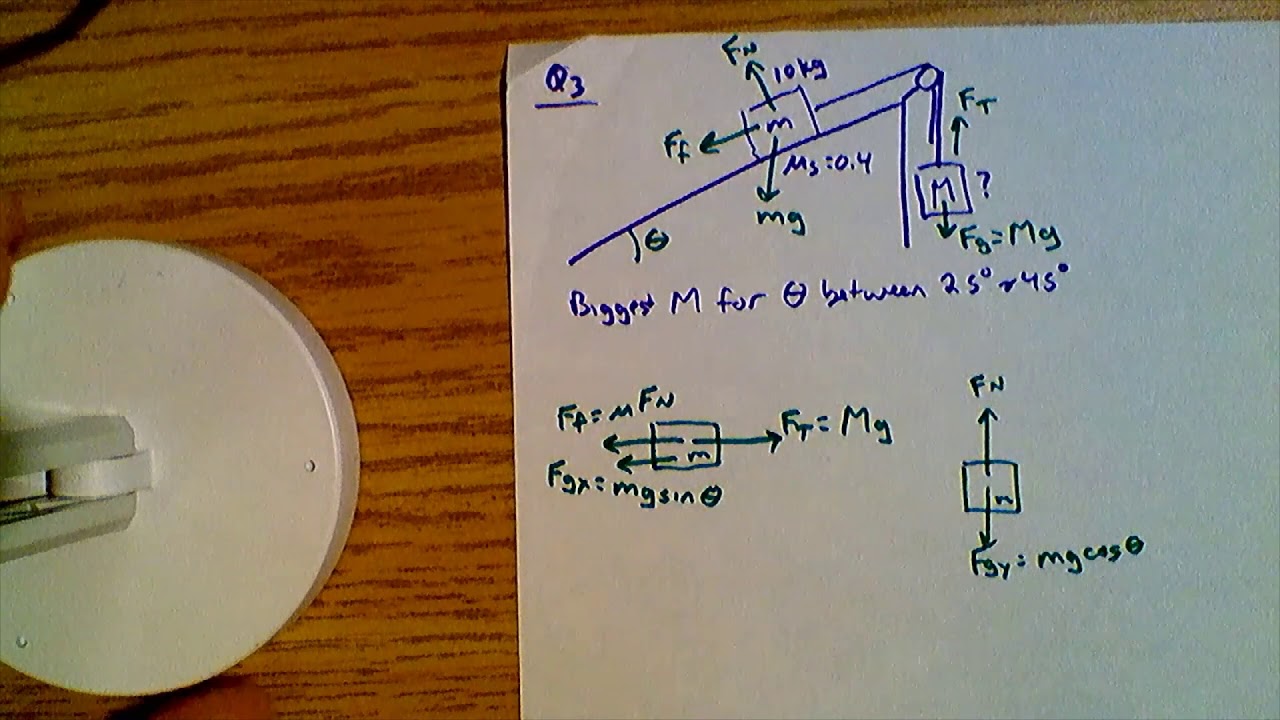 Q3
FN
10kg
m
Ff
μs=0.4
mg
θ
FT
M ?
Fg=Mg
Biggest M for θ between 25° → 45°
Ff=μFN
m
FT=Mg
Fgx=mgsinθ
FN
m
Fgy=mgcosθ